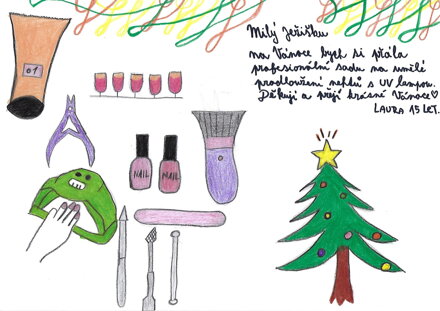 Milý Ježíšku
na Vánoce bych si přála
profesionální sadu na umělé
prodloužení nehtů s UV lampou.
Děkuji a přeji krásné Vánoce♡
LAURA 15 LET.
01
NAIL
NAIL